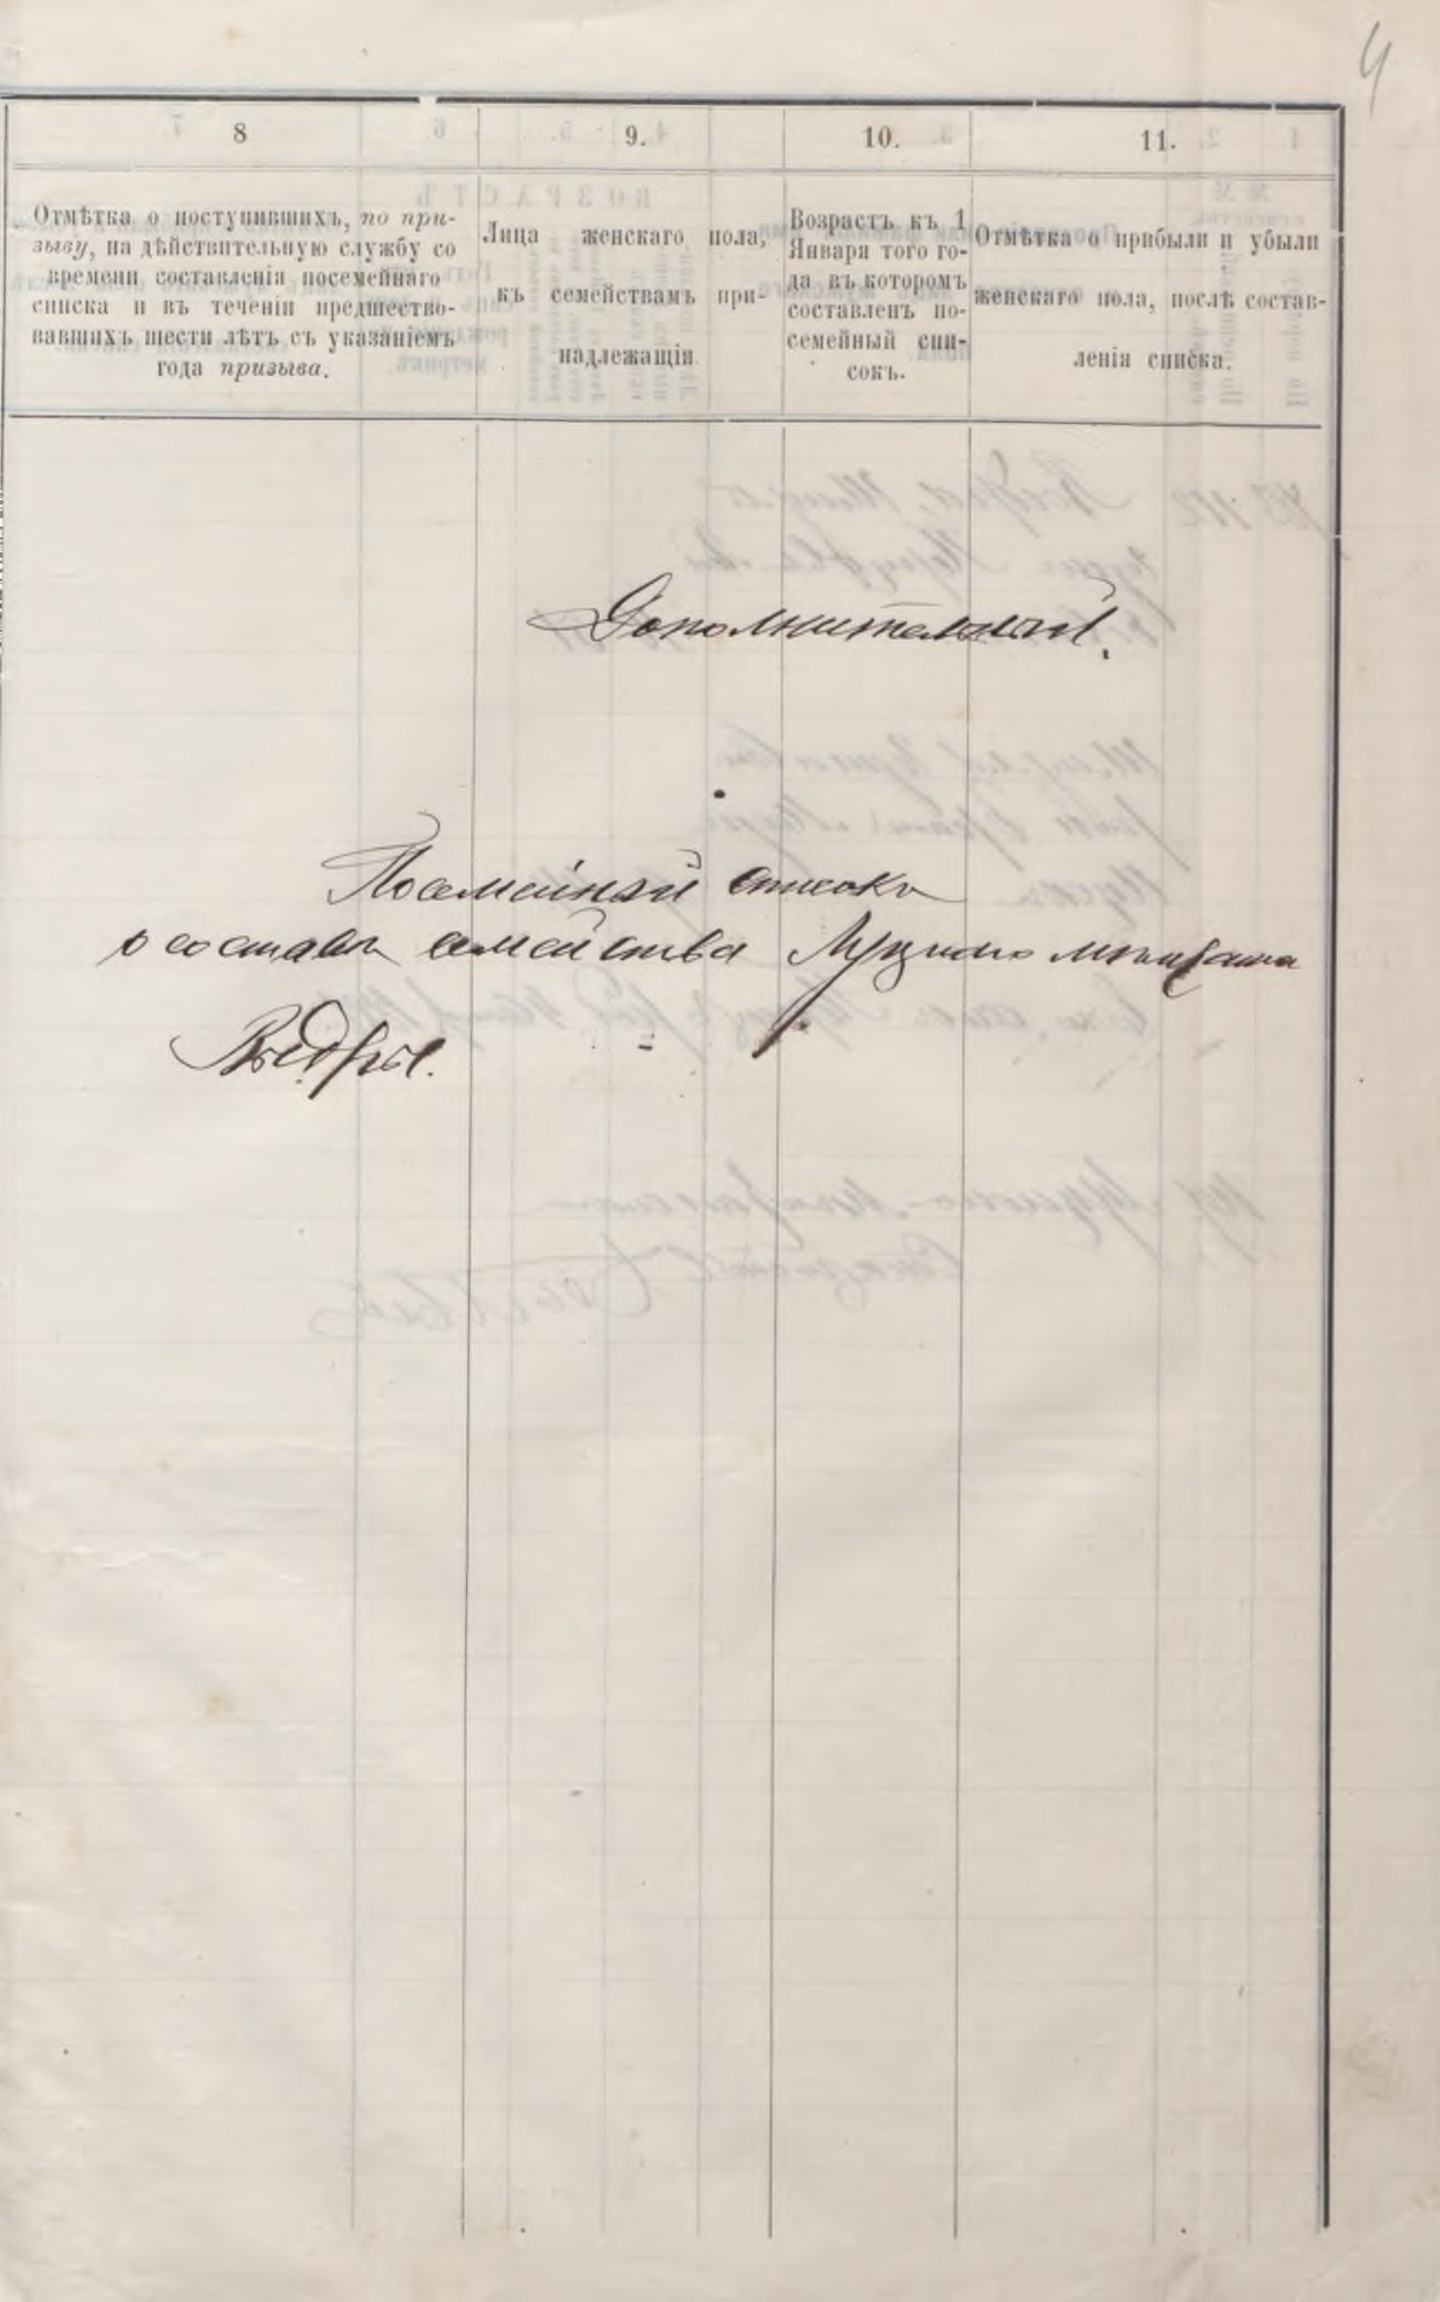 4
8
9.
10.
11.
Отмѣтка о поступившихъ, по при-
зыву, на дѣйствительную службу со
времени составленія посемейнаго
списка и въ теченіи предшество-
вавшихъ шести лѣтъ съ указаніемъ
года призыва.
Лица женскаго пола,
къ семействамъ при-
надлежащія
Возрастъ къ 1
Января того го-
да въ которомъ
составленъ по-
семейный спи-
сокъ.
Отмѣтка о прибыли и убыли
женскаго пола, послѣ состав-
ленія списка.
Дополнительный.
Посемейный списокъ
о составѣ семейства